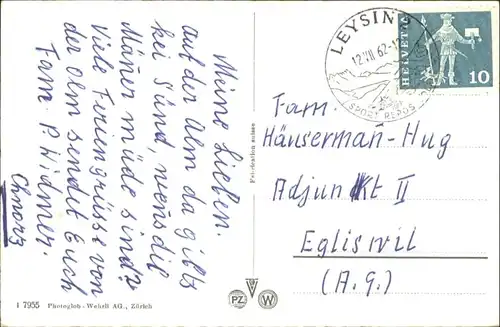 Meine Lieben.
auf der Alm da gibts
kei Sünd, wenns die
Mäner müde sind?
Viele Feriengrüsse von
der Alm sendet Euch
Fam. P. Widmer.
LEYSIN
12.VII.62-12
SPORT REPOS
HELVETIA
10
Fam.
Häuserman-Hug
Adjunkt II
Egliswil
(A.G.)
I 7955 Photoglob-Wehrli AG., Zürich
PZ W